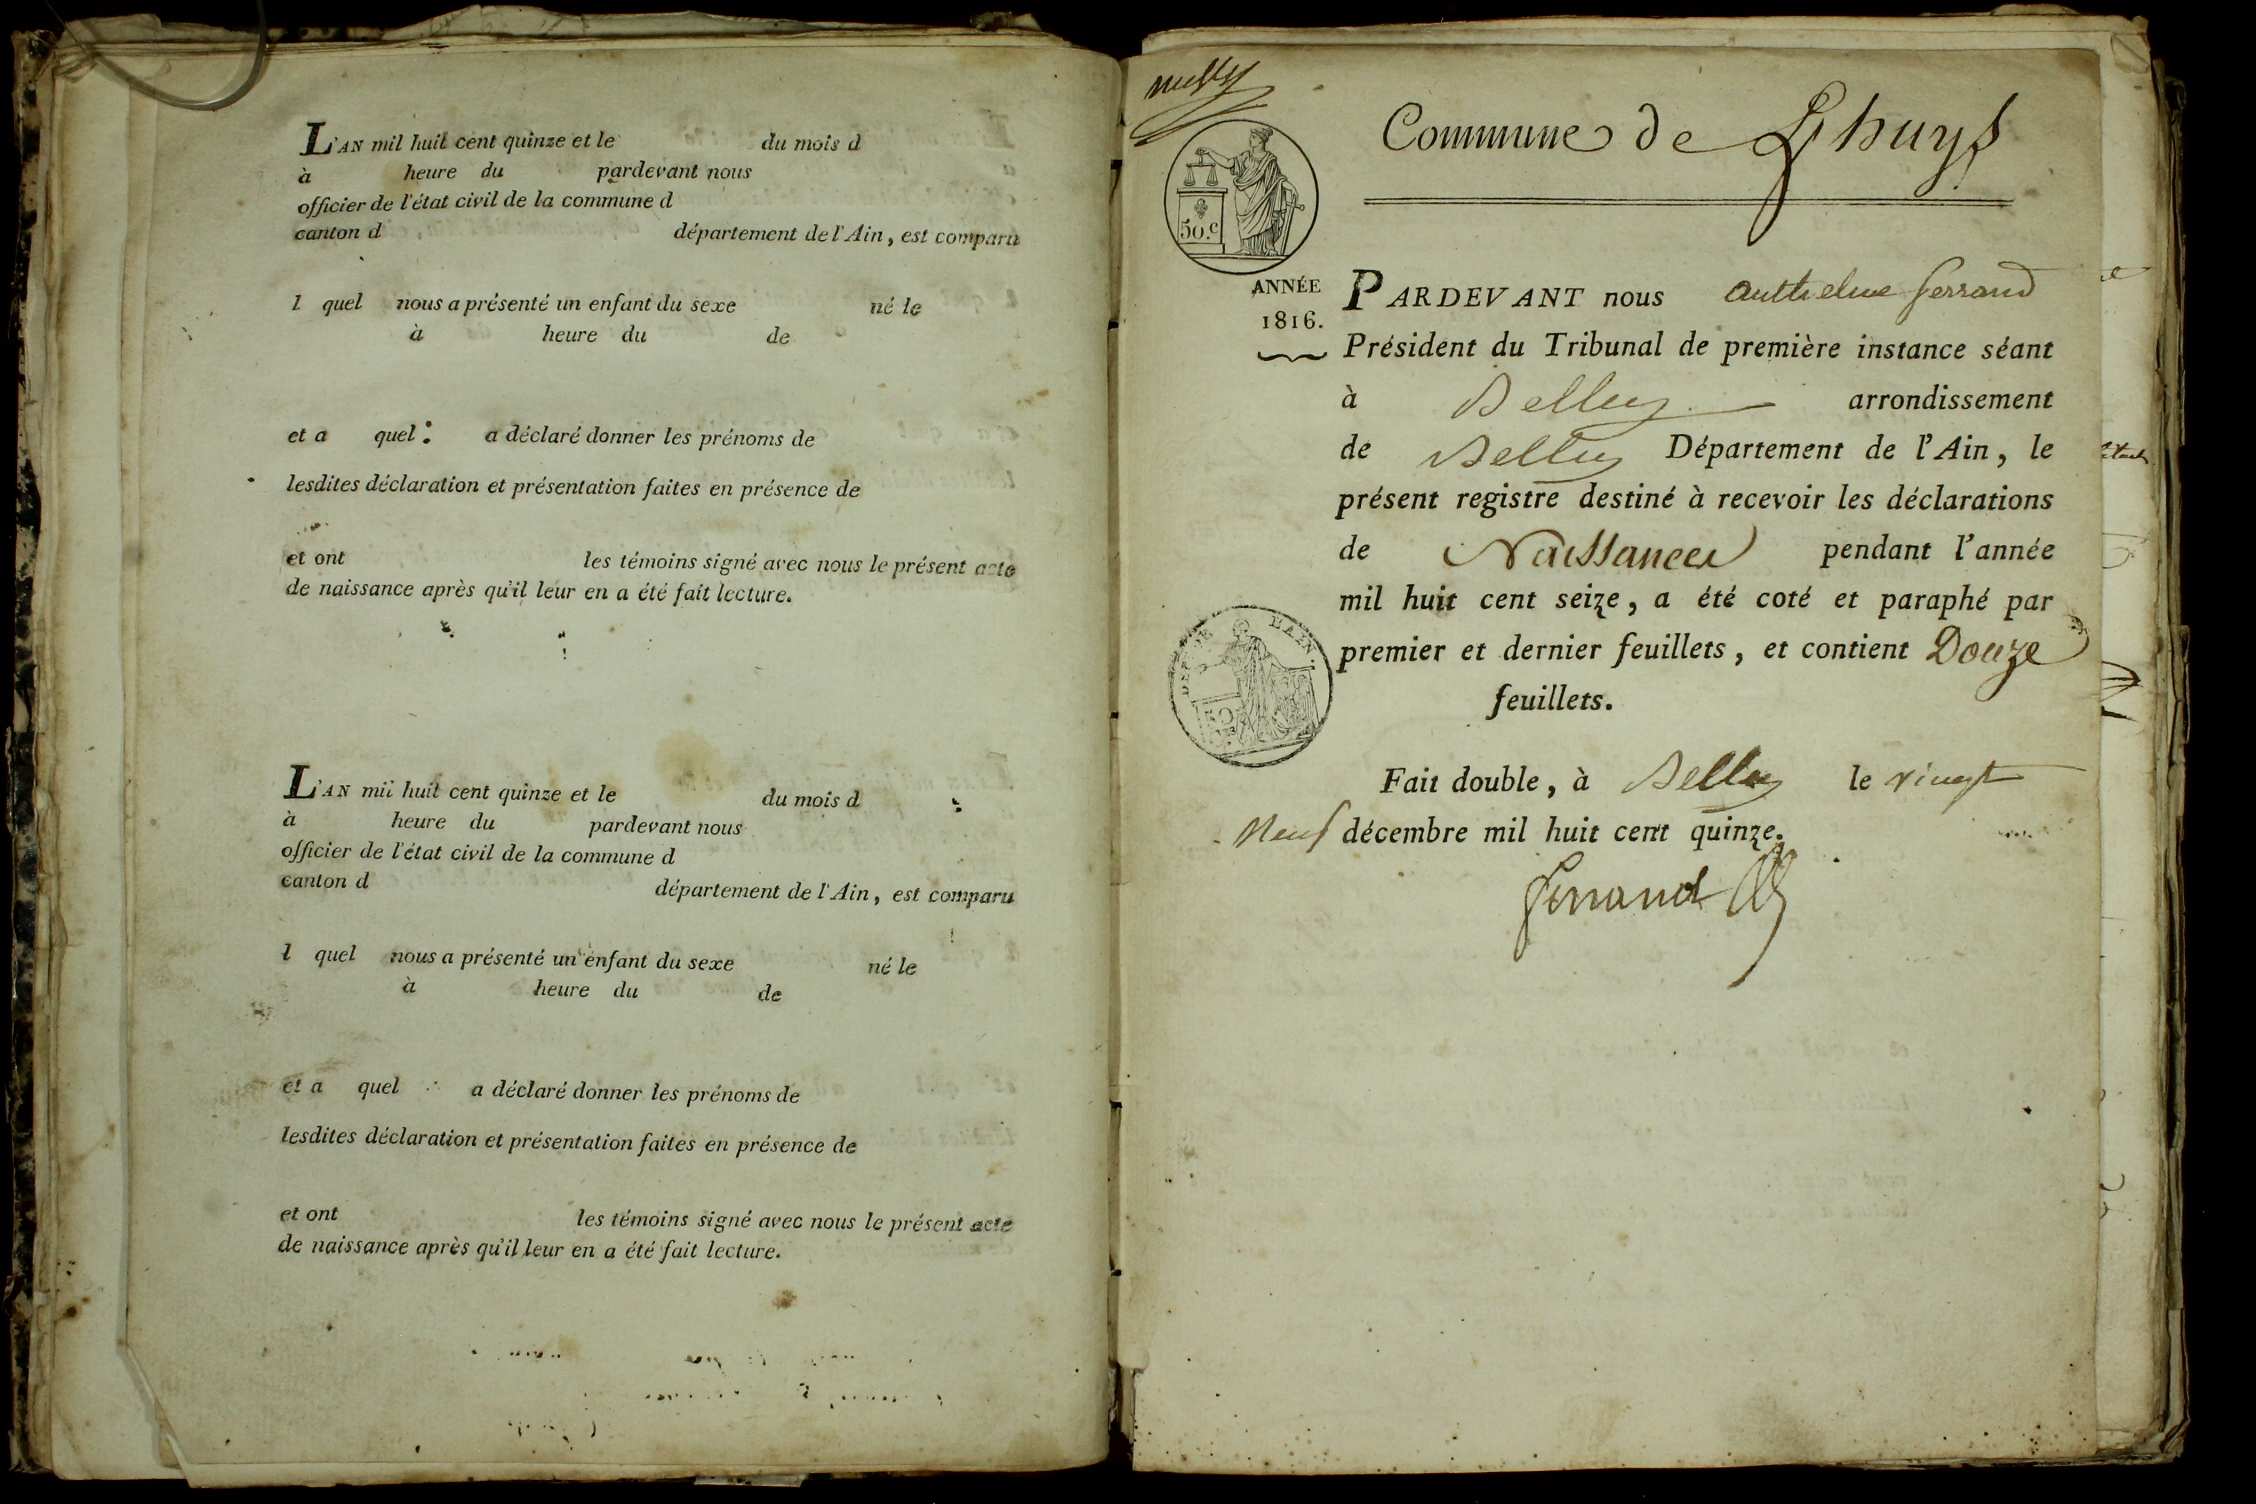 L'AN mil huit cent quinze et le du mois d
à heure du pardevant nous
officier de l'état civil de la commune d
canton d département de l'Ain, est comparu
l quel nous a présenté un enfant du sexe né le
à heure du de
et a quel : a déclaré donner les prénoms de
lesdites déclaration et présentation faites en présence de
et ont les témoins signé avec nous le présent acte
de naissance après qu'il leur en a été fait lecture.
L'AN mil huit cent quinze et le du mois d
à heure du pardevant nous
officier de l'état civil de la commune d
canton d département de l'Ain, est comparu
l quel nous a présenté un enfant du sexe né le
à heure du de
et a quel a déclaré donner les prénoms de
lesdites déclaration et présentation faites en présence de
et ont les témoins signé avec nous le présent acte
de naissance après qu'il leur en a été fait lecture.
Commune de Lhuys
50.c
ANNÉE
1816.
PARDEVANT nous Anthelme ferrand
Président du Tribunal de première instance séant
à Belley arrondissement
de Belley Département de l'Ain, le
présent registre destiné à recevoir les déclarations
de Naissances pendant l'année
mil huit cent seize, a été coté et paraphé par
premier et dernier feuillets, et contient Douze
feuillets.
Fait double, à Belley le vingt
Neuf décembre mil huit cent quinze.
ferrand